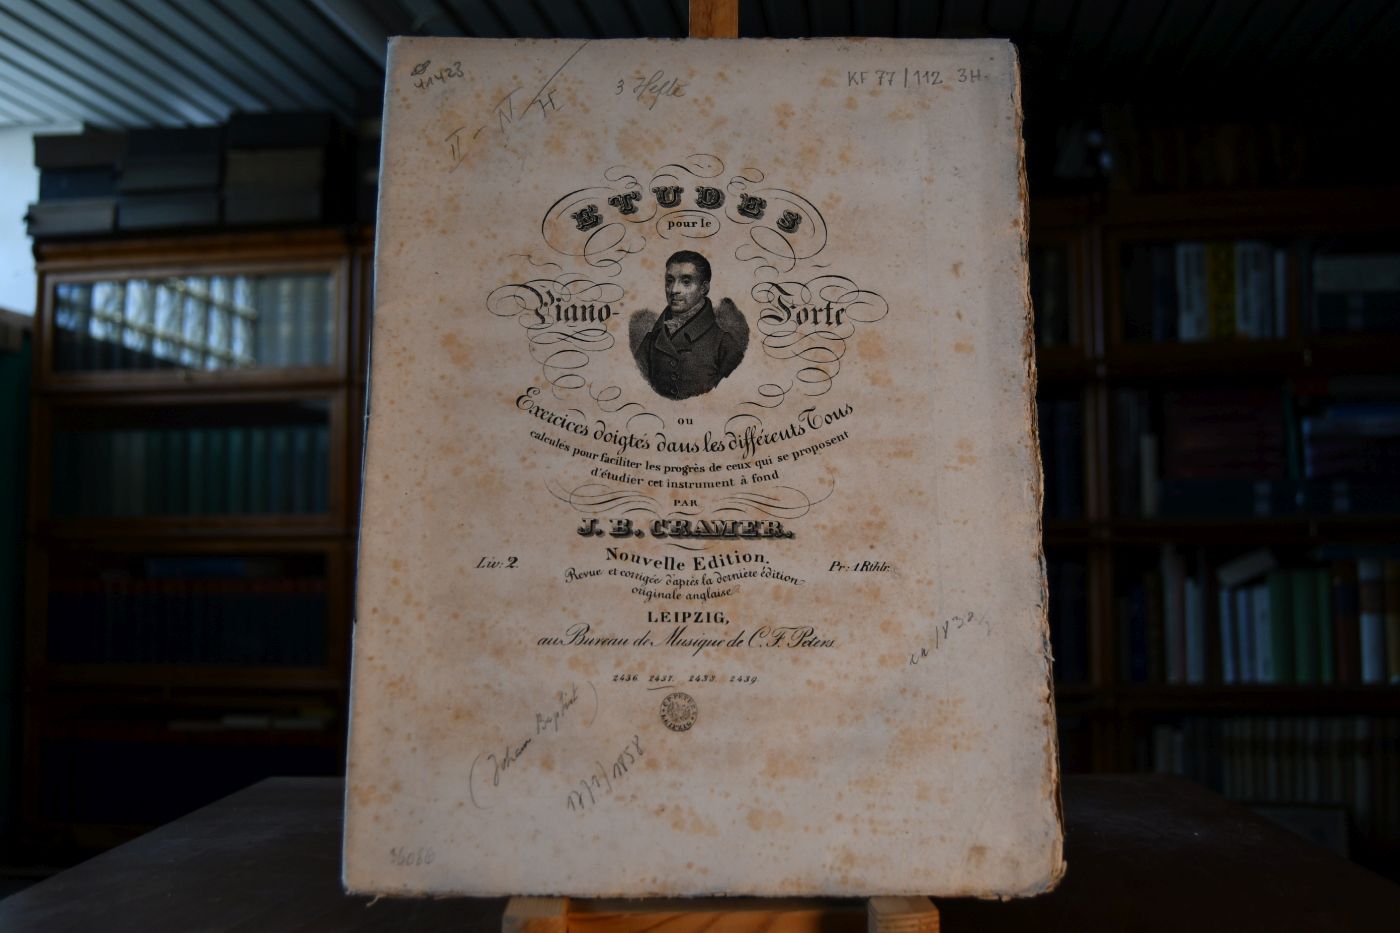 41423
3 Hefte
KF 77/112 3H.
II - IV - H
ETUDES
pour le
Piano-Forte
ou
Exercices doigtés dans les différents Tons
calculés pour faciliter les progrès de ceux qui se proposent
d'étudier cet instrument à fond
PAR
J. B. CRAMER.
Nouvelle Edition.
Liv: 2. Pr: 1 Rthlr.
Revue et corrigée d'après la dernière édition
originale anglaise
LEIPZIG,
au Bureau de Musique de C. F. Peters
2436. 2437. 2438. 2439.
(Johann Baptist)
1858
36086